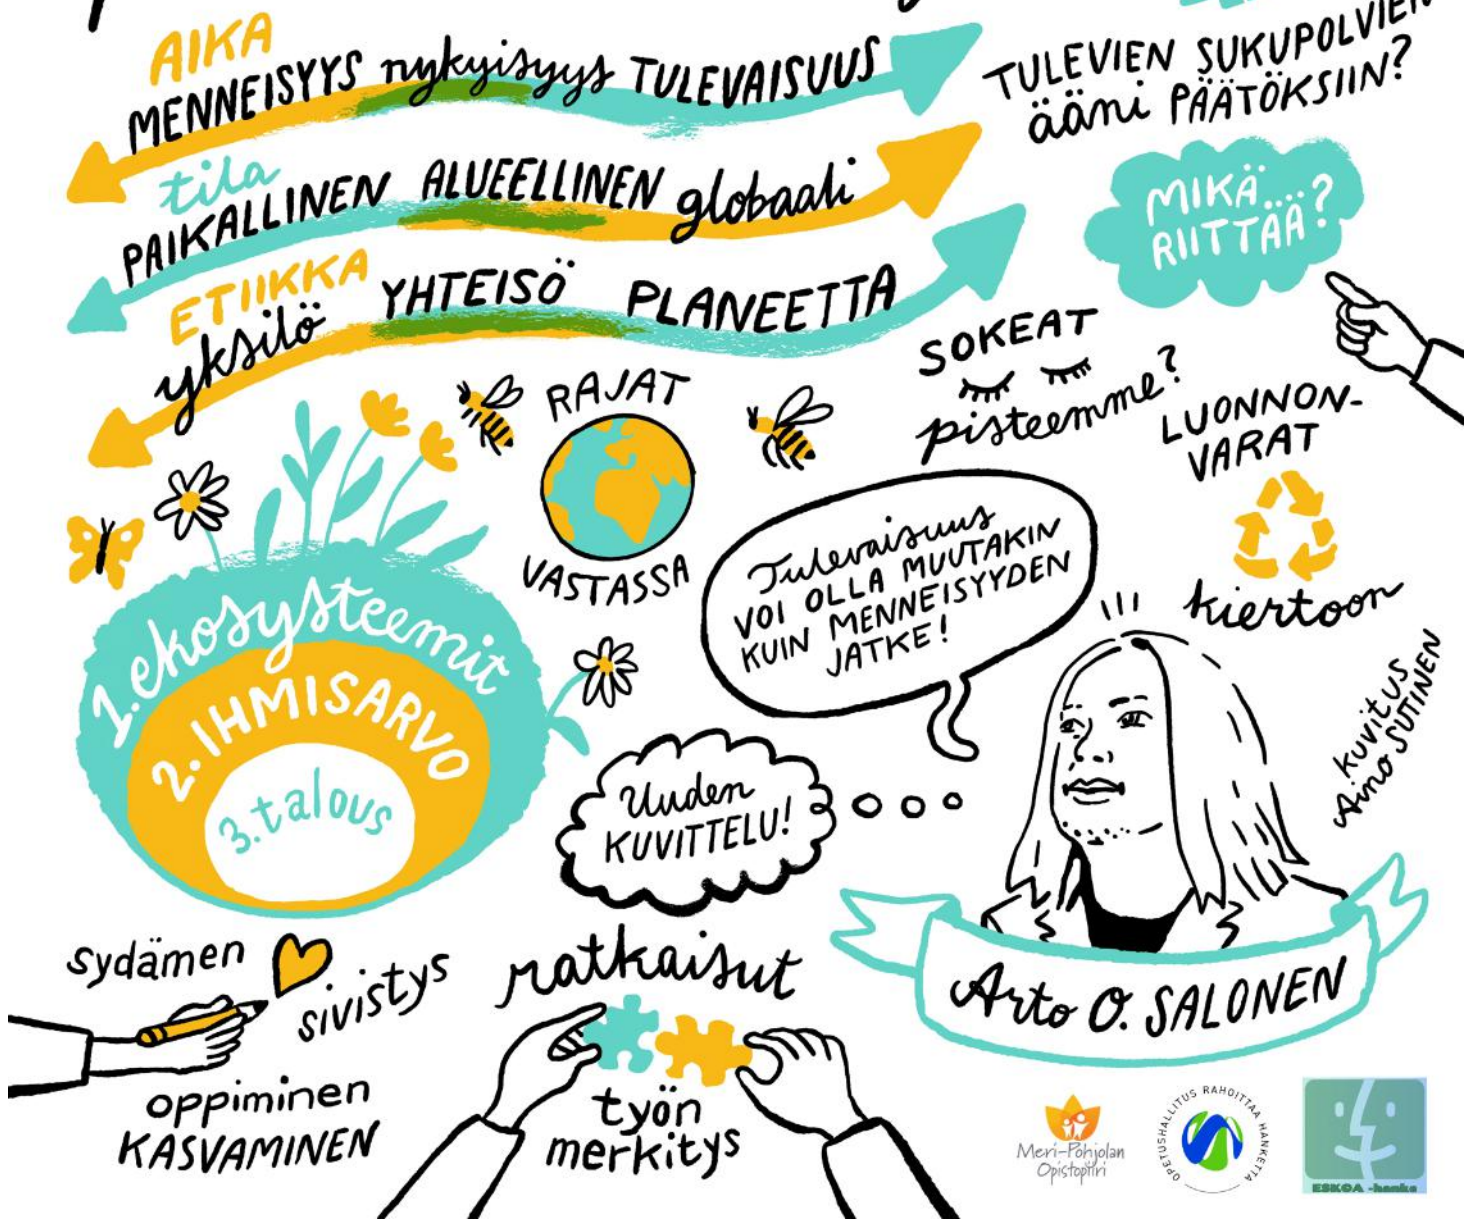 AIKA
MENNEISYYS nykyisyys TULEVAISUUS
tila
PAIKALLINEN ALUEELLINEN globaali
ETIIKKA
yksilö YHTEISÖ PLANEETTA
TULEVIEN SUKUPOLVIEN
ääni PÄÄTÖKSIIN?
MIKÄ...
RIITTÄÄ?
SOKEAT
pisteemme?
RAJAT
VASTASSA
LUONNON-
VARAT
kiertoon
Tulevaisuus
VOI OLLA MUUTAKIN
KUIN MENNEISYYDEN
JATKE!
1. ekosysteemit
2. IHMISARVO
3. talous
Uuden
KUVITTELU!
kuvitus
Aino SUTINEN
Arto O. SALONEN
sydämen
sivistys
oppiminen
KASVAMINEN
ratkaisut
työn
merkitys
Meri-Pohjolan
Opistopiiri
OPETUSHALLITUS RAHOITTAA HANKETTA
ESKOA -hanke